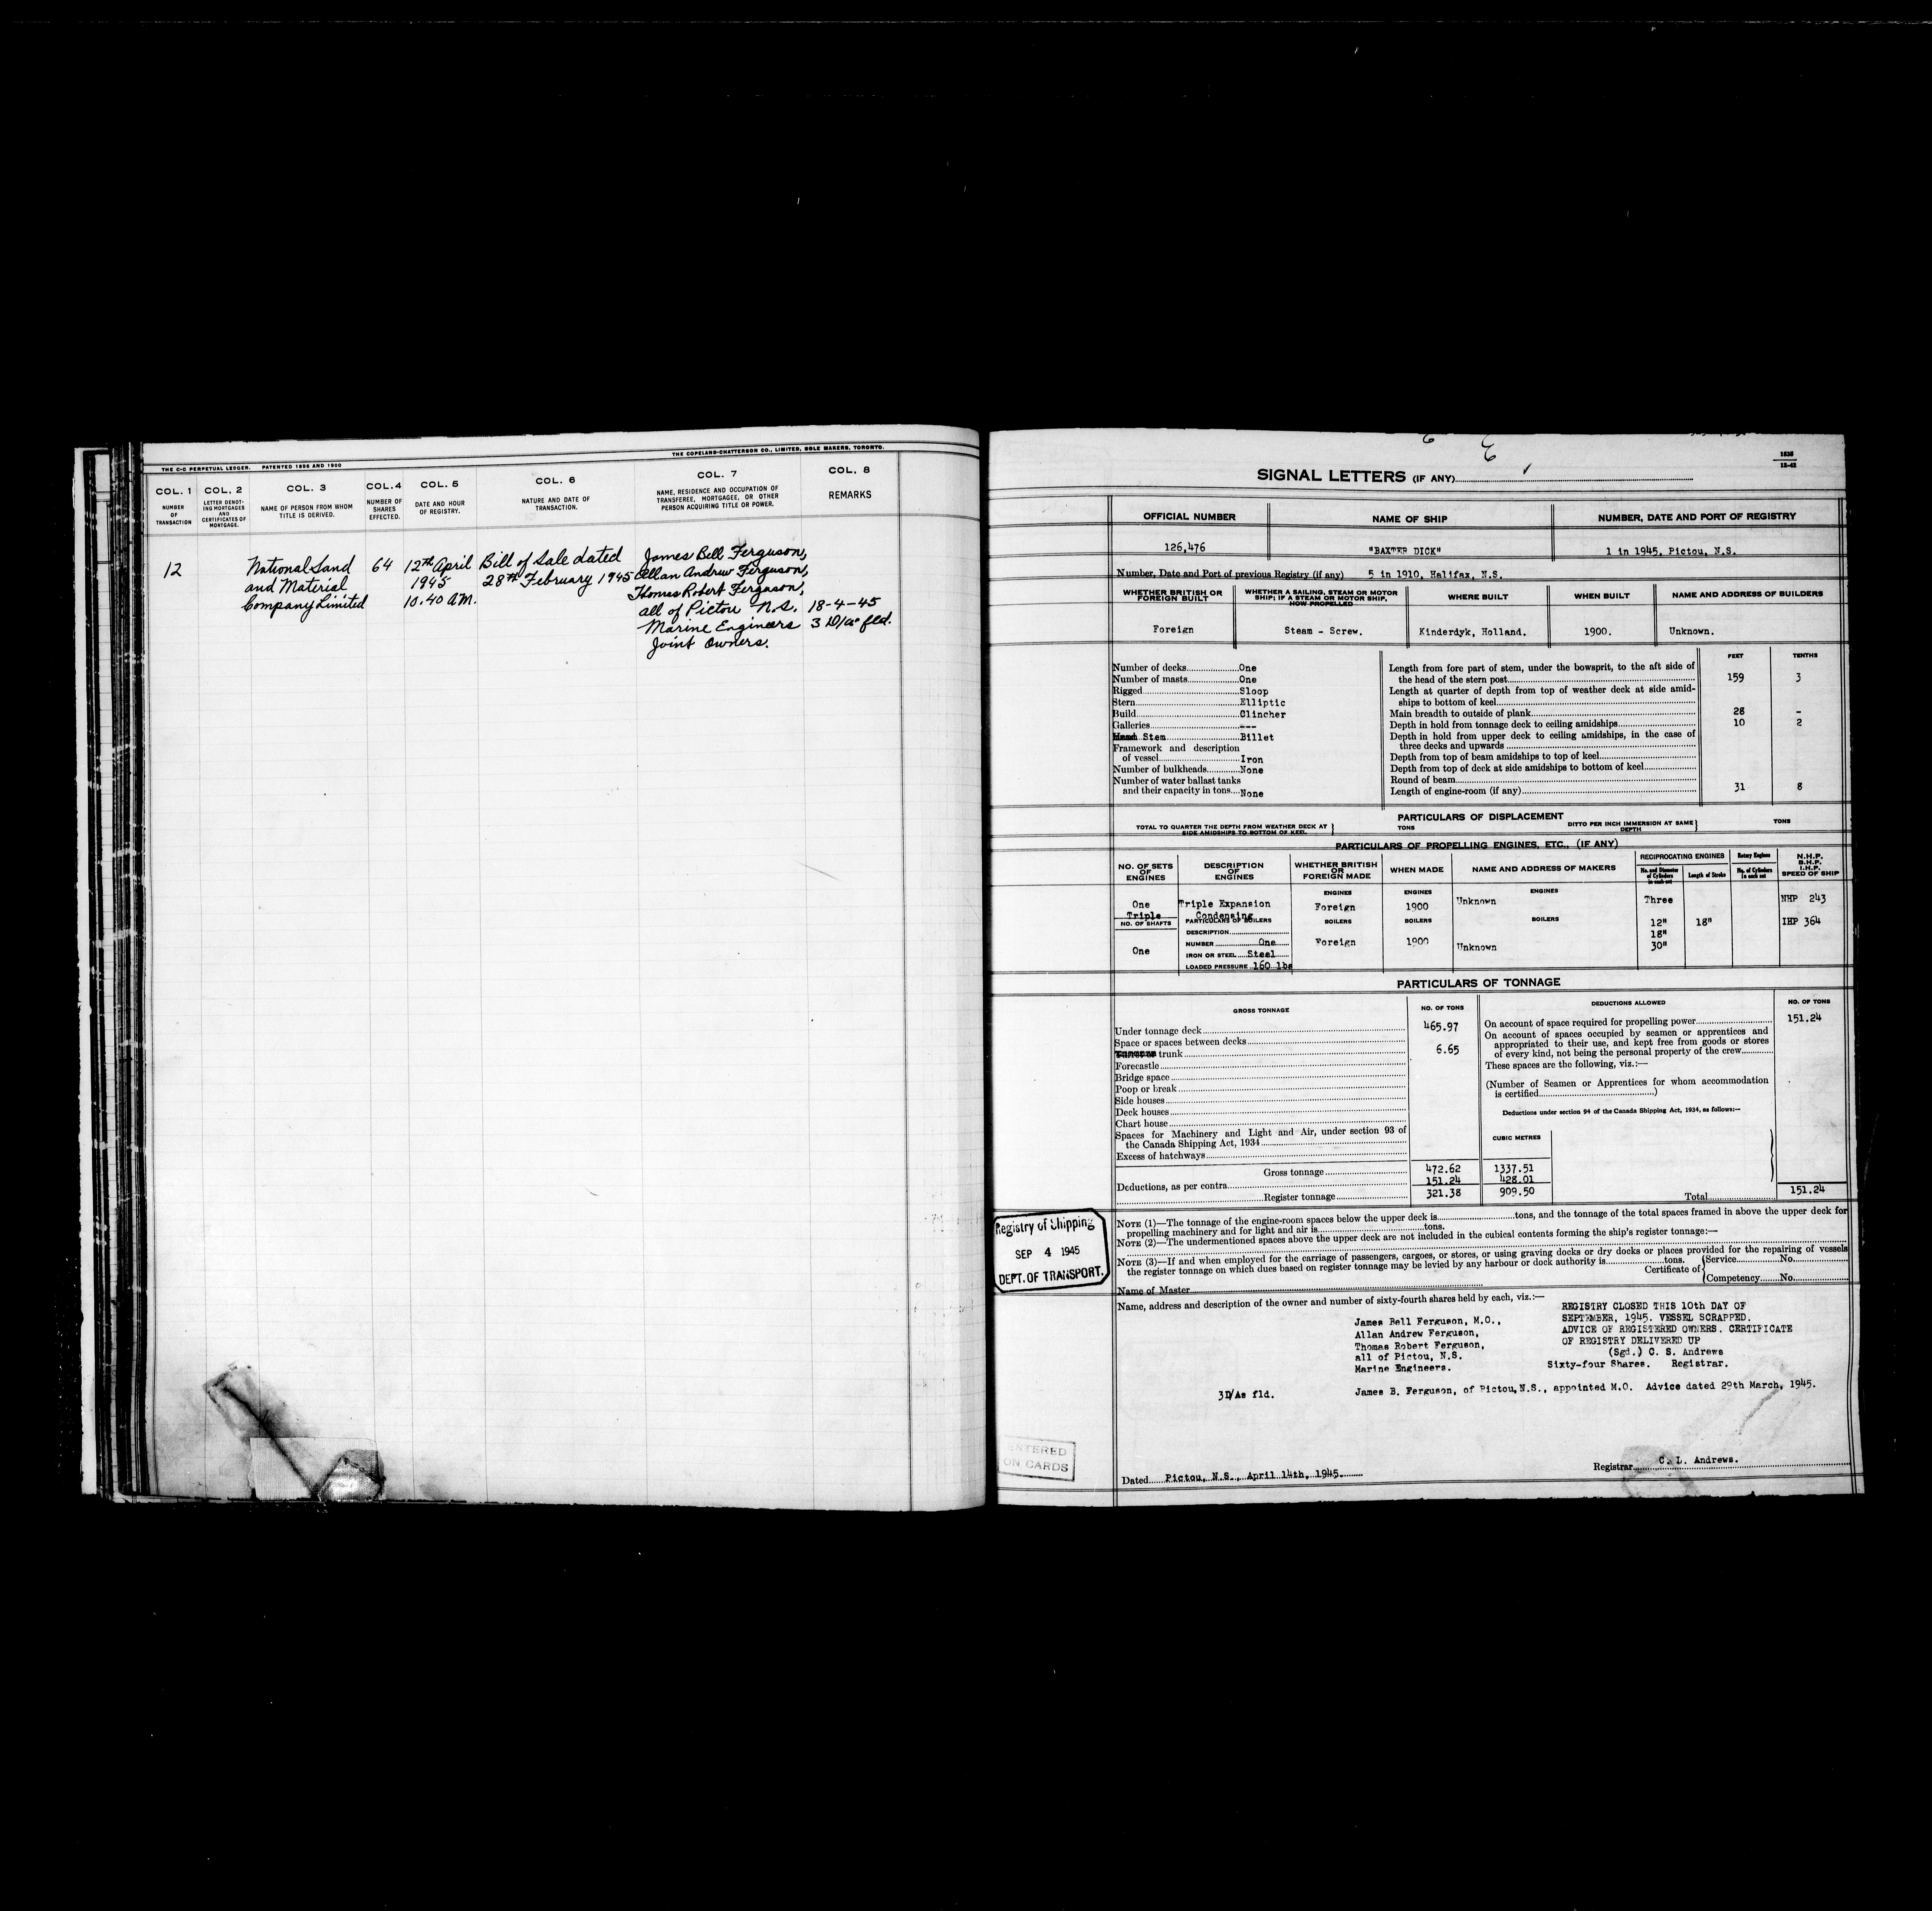 THE C-C PERPETUAL LEDGER. PATENTED 1896 AND 1900
THE COPELAND-CHATTERSON CO., LIMITED, SOLE MAKERS, TORONTO.
COL. 1
NUMBER
OF
TRANSACTION
COL. 2
LETTER DENOT-
ING MORTGAGES
AND
CERTIFICATES OF
MORTGAGE.
COL. 3
NAME OF PERSON FROM WHOM
TITLE IS DERIVED.
COL.4
NUMBER OF
SHARES
EFFECTED.
COL. 5
DATE AND HOUR
OF REGISTRY.
COL. 6
NATURE AND DATE OF
TRANSACTION.
COL. 7
NAME, RESIDENCE AND OCCUPATION OF
TRANSFEREE, MORTGAGEE, OR OTHER
PERSON ACQUIRING TITLE OR POWER.
COL. 8
REMARKS
12
National Sand
and Material
Company Limited
64
12th April
1945
10.40 A.M.
Bill of Sale dated
28th February 1945
James Bell Ferguson,
Allan Andrew Ferguson,
Thomas Robert Ferguson,
all of Pictou N.S.
Marine Engineers
Joint Owners.
18-4-45
3 D/as fld.
1535
12-42
SIGNAL LETTERS (IF ANY)
OFFICIAL NUMBER
NAME OF SHIP
NUMBER, DATE AND PORT OF REGISTRY
126,476
"BAXTER DICK"
1 in 1945, Pictou, N.S.
Number, Date and Port of previous Registry (if any) 5 in 1910, Halifax, N.S.
WHETHER BRITISH OR
FOREIGN BUILT
WHETHER A SAILING, STEAM OR MOTOR
SHIP; IF A STEAM OR MOTOR SHIP,
HOW PROPELLED
WHERE BUILT
WHEN BUILT
NAME AND ADDRESS OF BUILDERS
Foreign
Steam - Screw.
Kinderdyk, Holland.
1900.
Unknown.
Number of decks One
Number of masts One
Rigged Sloop
Stern Elliptic
Build Clincher
Galleries ---
Stem Billet
Framework and description
of vessel Iron
Number of bulkheads None
Number of water ballast tanks
and their capacity in tons None
FEET
TENTHS
Length from fore part of stem, under the bowsprit, to the aft side of
the head of the stern post 159 3
Length at quarter of depth from top of weather deck at side amid-
ships to bottom of keel
Main breadth to outside of plank 28 -
Depth in hold from tonnage deck to ceiling amidships 10 2
Depth in hold from upper deck to ceiling amidships, in the case of
three decks and upwards
Depth from top of beam amidships to top of keel
Depth from top of deck at side amidships to bottom of keel
Round of beam
Length of engine-room (if any) 31 8
PARTICULARS OF DISPLACEMENT
TOTAL TO QUARTER THE DEPTH FROM WEATHER DECK AT
SIDE AMIDSHIPS TO BOTTOM OF KEEL
TONS
DITTO PER INCH IMMERSION AT SAME
DEPTH
TONS
PARTICULARS OF PROPELLING ENGINES, ETC., (IF ANY)
NO. OF SETS
OF
ENGINES
DESCRIPTION
OF
ENGINES
WHETHER BRITISH
OR
FOREIGN MADE
WHEN MADE
NAME AND ADDRESS OF MAKERS
RECIPROCATING ENGINES
No. and Diameter
of Cylinders
in each set
Length of Stroke
Rotary Engines
No. of Cylinders
in each set
N.H.P.
B.H.P.
I.H.P.
SPEED OF SHIP
One
Triple
NO. OF SHAFTS
One
Triple Expansion
Condensing
PARTICULARS OF BOILERS
DESCRIPTION
NUMBER One
IRON OR STEEL Steel
LOADED PRESSURE 160 lbs
ENGINES
Foreign
BOILERS
Foreign
ENGINES
1900
BOILERS
1900
ENGINES
Unknown
BOILERS
Unknown
Three
12"
18"
30"
18"
NHP 243
IHP 364
PARTICULARS OF TONNAGE
GROSS TONNAGE
NO. OF TONS
DEDUCTIONS ALLOWED
NO. OF TONS
Under tonnage deck 465.97
Space or spaces between decks
trunk 6.65
Forecastle
Bridge space
Poop or break
Side houses
Deck houses
Chart house
Spaces for Machinery and Light and Air, under section 93 of
the Canada Shipping Act, 1934
Excess of hatchways
On account of space required for propelling power 151.24
On account of spaces occupied by seamen or apprentices and
appropriated to their use, and kept free from goods or stores
of every kind, not being the personal property of the crew
These spaces are the following, viz.:—
(Number of Seamen or Apprentices for whom accommodation
is certified)
Deductions under section 94 of the Canada Shipping Act, 1934, as follows:—
CUBIC METRES
Gross tonnage 472.62 1337.51
Deductions, as per contra 151.24 428.01
Register tonnage 321.38 909.50
Total 151.24
Registry of Shipping
SEP 4 1945
DEPT. OF TRANSPORT.
NOTE (1)—The tonnage of the engine-room spaces below the upper deck is tons, and the tonnage of the total spaces framed in above the upper deck for
propelling machinery and for light and air is tons.
NOTE (2)—The undermentioned spaces above the upper deck are not included in the cubical contents forming the ship's register tonnage:—
NOTE (3)—If and when employed for the carriage of passengers, cargoes, or stores, or using graving docks or dry docks or places provided for the repairing of vessels
the register tonnage on which dues based on register tonnage may be levied by any harbour or dock authority is tons.
Certificate of
Service No.
Competency No.
Name of Master
Name, address and description of the owner and number of sixty-fourth shares held by each, viz.:—
James Bell Ferguson, M.O.,
Allan Andrew Ferguson,
Thomas Robert Ferguson,
all of Pictou, N.S.
Marine Engineers.
REGISTRY CLOSED THIS 10th DAY OF
SEPTEMBER, 1945. VESSEL SCRAPPED.
ADVICE OF REGISTERED OWNERS. CERTIFICATE
OF REGISTRY DELIVERED UP
(Sgd.) C. S. Andrews
Sixty-four Shares. Registrar.
3D/As fld.
James B. Ferguson, of Pictou, N.S., appointed M.O. Advice dated 29th March, 1945.
ENTERED
ON CARDS
Dated Pictou, N.S., April 14th, 1945.
Registrar C. L. Andrews.